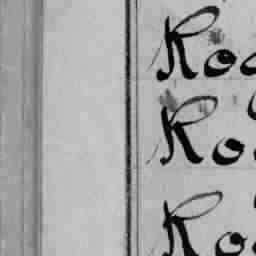 Ro
Ro
Ro